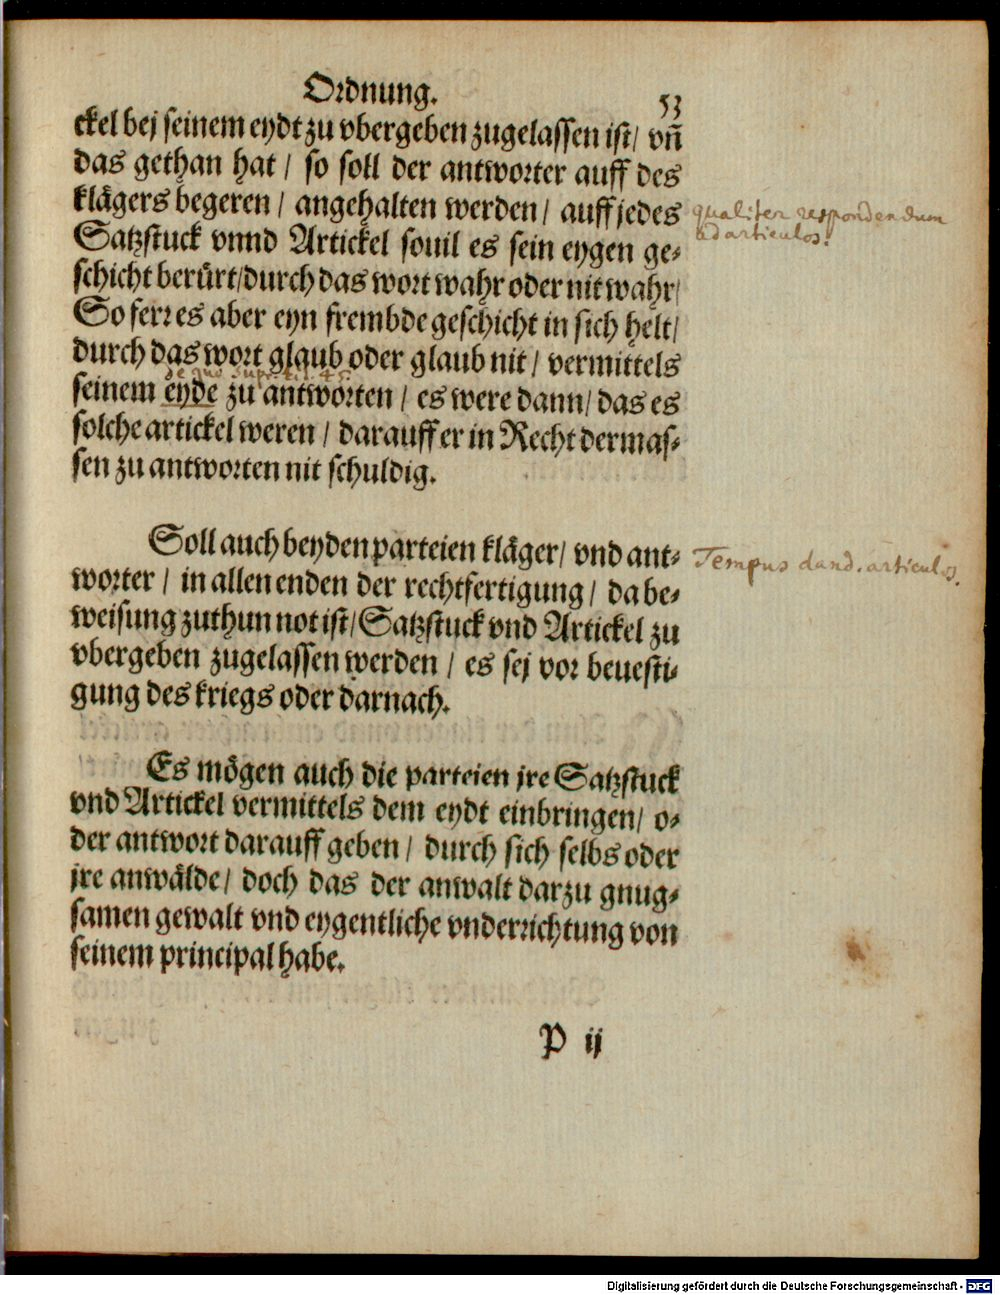 Ordnung. 53
ckel bej seinem eydt zu vbergeben zugelassen ist / vñ
das gethan hat / so soll der antworter auff des
klägers begeren / angehalten werden / auff jedes
qualiter respondendum
ad articulos.
Satzstuck vnnd Artickel souil es sein eygen ge-
schicht berürt / durch das wort wahr oder nit wahr /
So ferr es aber eyn frembde geschicht in sich helt /
durch das wort glaub oder glaub nit / vermittels
de quo supr. tit. 45.
seinem eyde zu antworten / es were dann / das es
solche artickel weren / darauff er in Recht dermas-
sen zu antworten nit schuldig.
Soll auch beyden parteien kläger / vnd ant-
Tempus dand. articulos.
worter / in allen enden der rechtfertigung / da be-
weisung zuthun not ist / Satzstuck vnd Artickel zu
vbergeben zugelassen werden / es sej vor beuesti-
gung des kriegs oder darnach.
Es mögen auch die parteien jre Satzstuck
vnd Artickel vermittels dem eydt einbringen / o-
der antwort darauff geben / durch sich selbs oder
jre anwälde / doch das der anwalt darzu gnug-
samen gewalt vnd eygentliche vnderrichtung von
seinem principal habe.
P ij
Digitalisierung gefördert durch die Deutsche Forschungsgemeinschaft - DFG